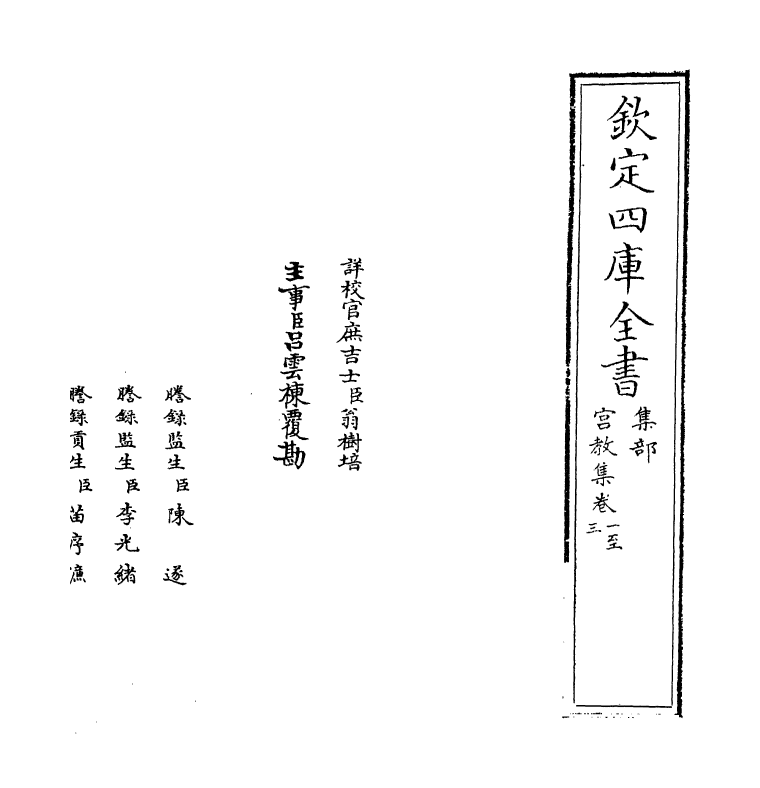 欽定四庫全書
集部
宫教集卷一至三
詳校官庶吉士臣翁樹培
主事臣呂雲棟覆勘
謄錄監生臣陳遂
謄錄監生臣李光緒
謄錄貢生臣苗序濂